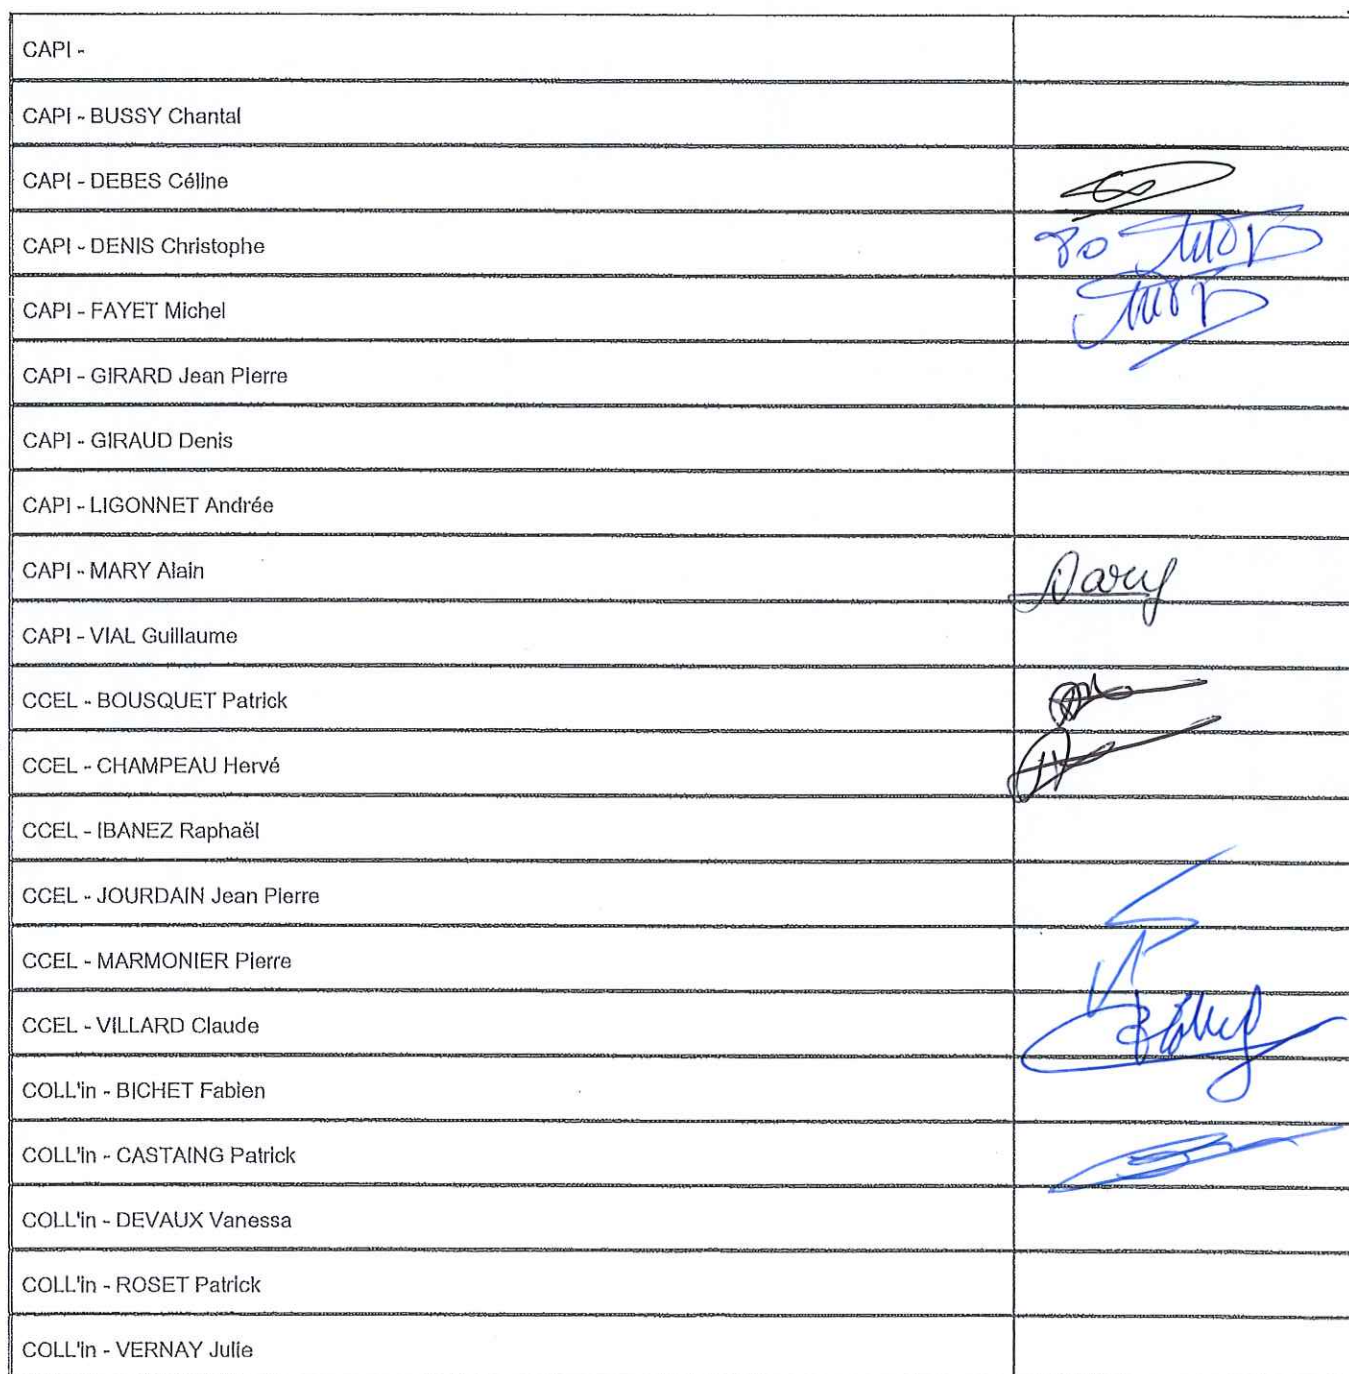 CAPI -
CAPI - BUSSY Chantal
CAPI - DEBES Céline
CAPI - DENIS Christophe
CAPI - FAYET Michel
CAPI - GIRARD Jean Pierre
CAPI - GIRAUD Denis
CAPI - LIGONNET Andrée
CAPI - MARY Alain
CAPI - VIAL Guillaume
CCEL - BOUSQUET Patrick
CCEL - CHAMPEAU Hervé
CCEL - IBANEZ Raphaël
CCEL - JOURDAIN Jean Pierre
CCEL - MARMONIER Pierre
CCEL - VILLARD Claude
COLL'in - BICHET Fabien
COLL'in - CASTAING Patrick
COLL'in - DEVAUX Vanessa
COLL'in - ROSET Patrick
COLL'in - VERNAY Julie